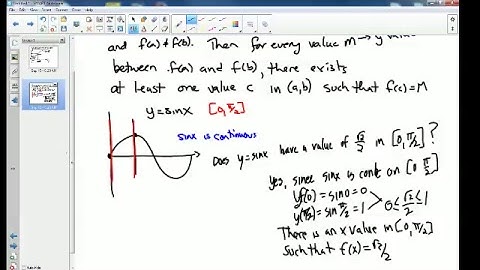 and f(a) ≠ f(b). Then for every value m → y value
between f(a) and f(b), there exists
at least one value c in (a,b) such that f(c)=M
y=sinx [0,π/2]
sinx is continuous
Does y=sinx have a value of √2/2 in [0,π/2]?
Yes, since sinx is cont on [0 π/2]
y(0)=sin0=0
y(π/2)=sin π/2=1
0≤√2/2≤1
There is an x value in [0,π/2]
such that f(x)=√2/2